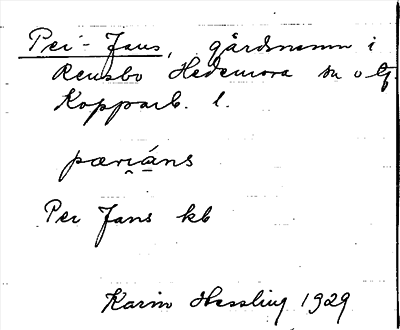 Per-Jans, gårdsnamn i
Rensbo Hedemora sn o tg.
Kopparb. l.
pærıáns
Per Jans kb
Karin Hessling 1929